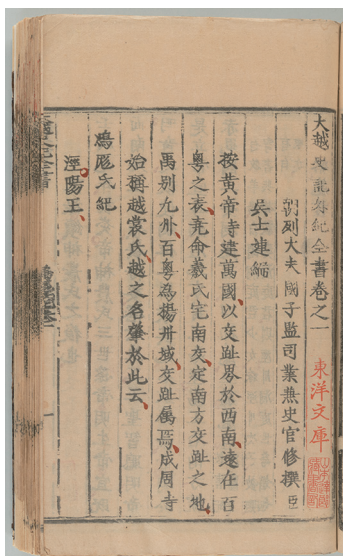 大越史記外紀全書卷之一
朝列大夫國子監司業兼史官修撰臣
吳士連編
按黃帝寺建萬國以交趾界於西南遠在百
粤之表堯命羲氏宅南交定南方交趾之地
禹別九州百粤為揚州域交趾屬焉成周寺
始稱越裳氏越之名肇於此云
鴻厖氏紀
涇陽王
東洋文庫